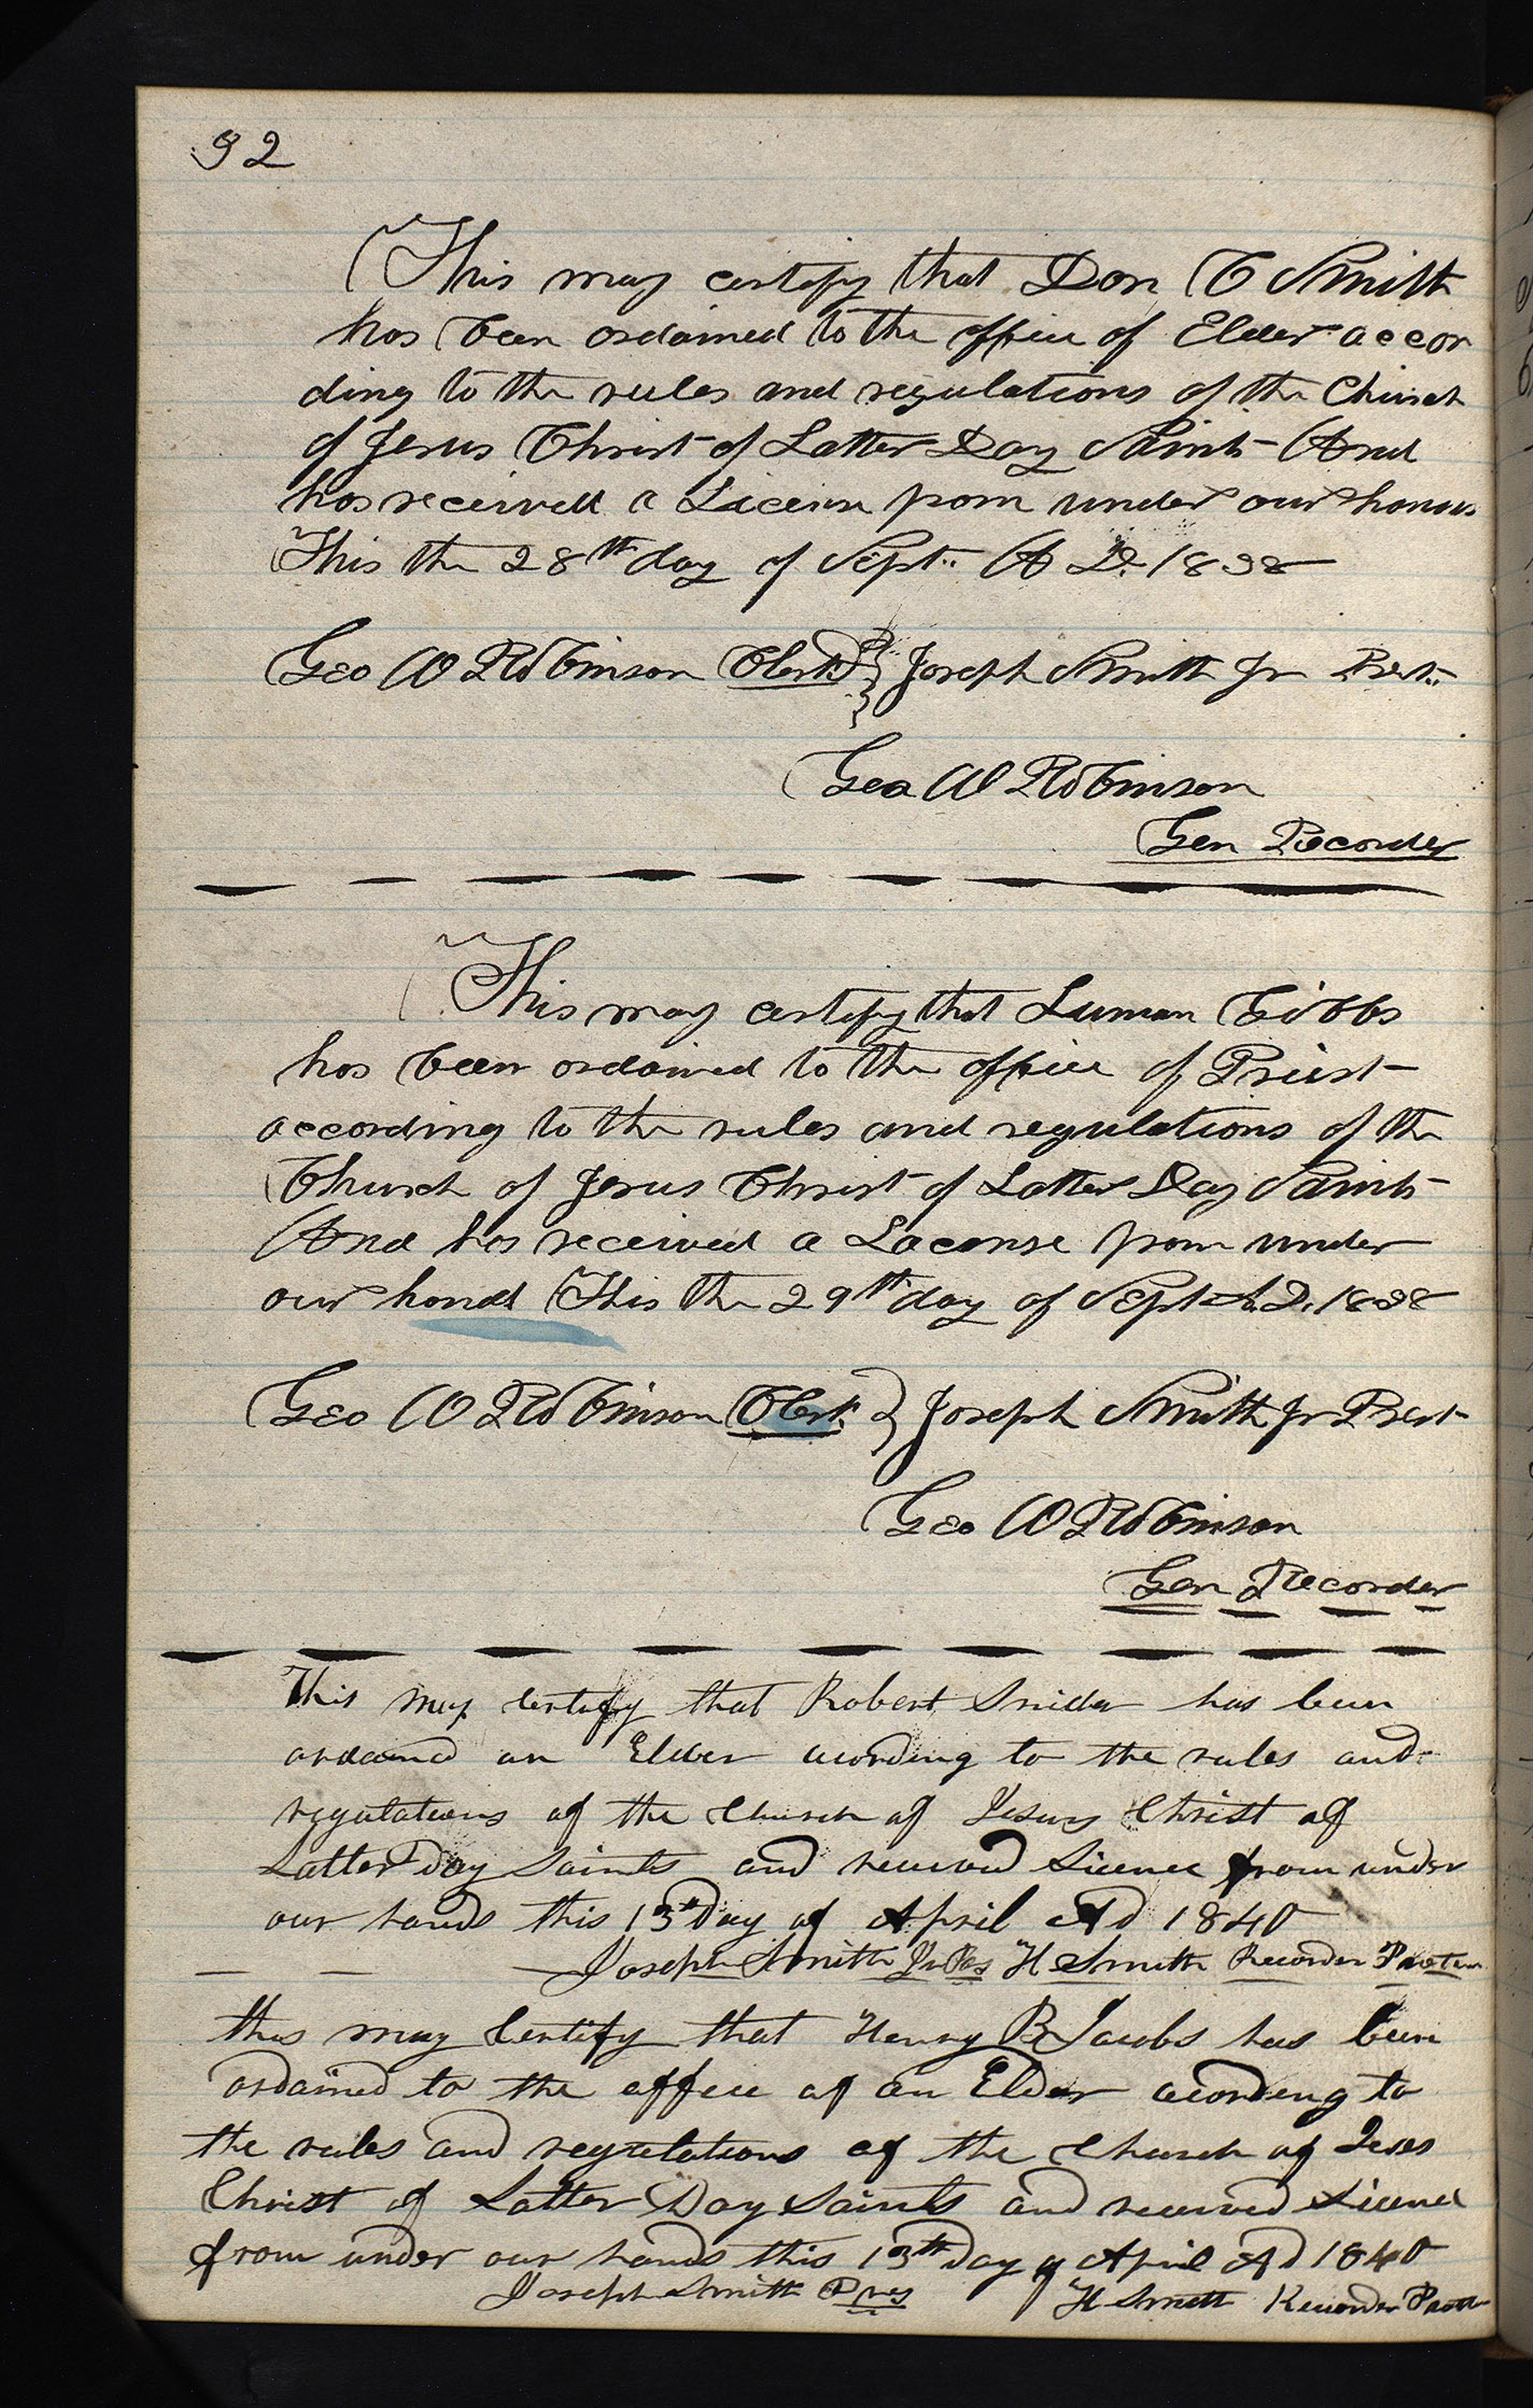 92
This may certify that Don C Smith
has been ordained to the office of Elder accor
ding to the rules and regulations of the Church
of Jesus Christ of Latter Day Saints And
has received a License from under our hands
This the 28th day of Sept. A D. 1838
Geo W Robinson Clerk } Joseph Smith Jr Prest.
Geo W Robinson
Gen Recorder
This may certify that Luman Gibbs
has been ordained to the office of Priest
according to the rules and regulations of the
Church of Jesus Christ of Latter Day Saints
And has received a Laconse from under
our hands This the 29th day of Sept A. D. 1838
Geo W Robinson Clerk } Joseph Smith Jr Prest
Geo W Robinson
Gen Recorder
This may certify that Robert Snider has been
ordained an Elder acording to the rules and
regulations of the Church of Jesus Christ of
Latter Day Saints and received Licence from under
our hands this 13th Day of April AD 1840
Joseph Smith Jr Pres H Smith Recorder Protem
this may Certify that Henry B Jacobs has been
ordained to the office of an Elder acording to
the rules and regulations of the Church of Jesus
Christ of Latter Day Saints and received Licence
from under our hands this 13th Day of April AD 1840
Joseph Smith Pres H Smith Recorder Protem